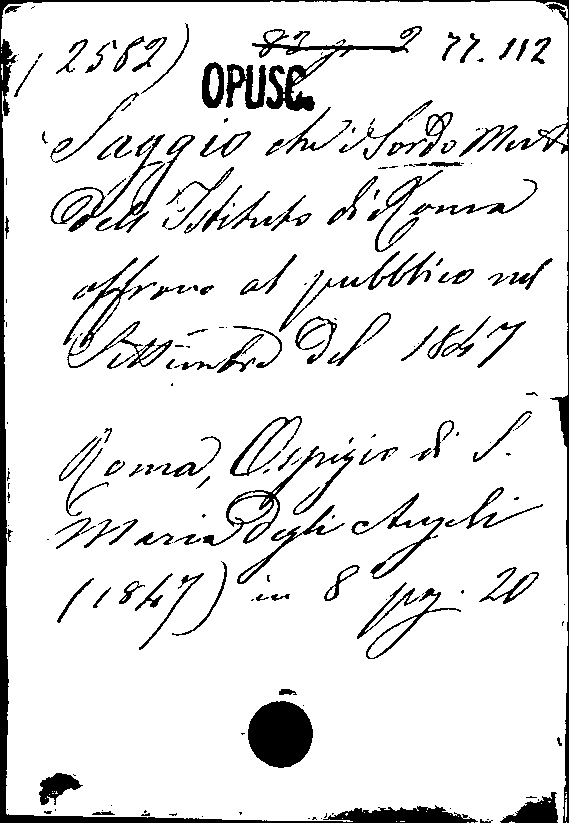 (2582) 77.112
OPUSC.
Saggio che i Sordo Muti
dell' Istituto di Roma
offrono al pubblico nel
Settembre del 1847
Roma, Ospizio di S.
Maria degli Angeli
(1847) in 8 pag. 20